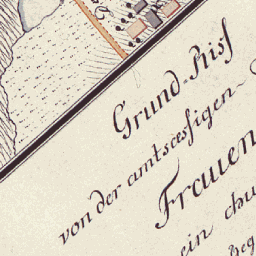 Grund-Riß
von der amtsæssigen
Frauen
ein chu
beg